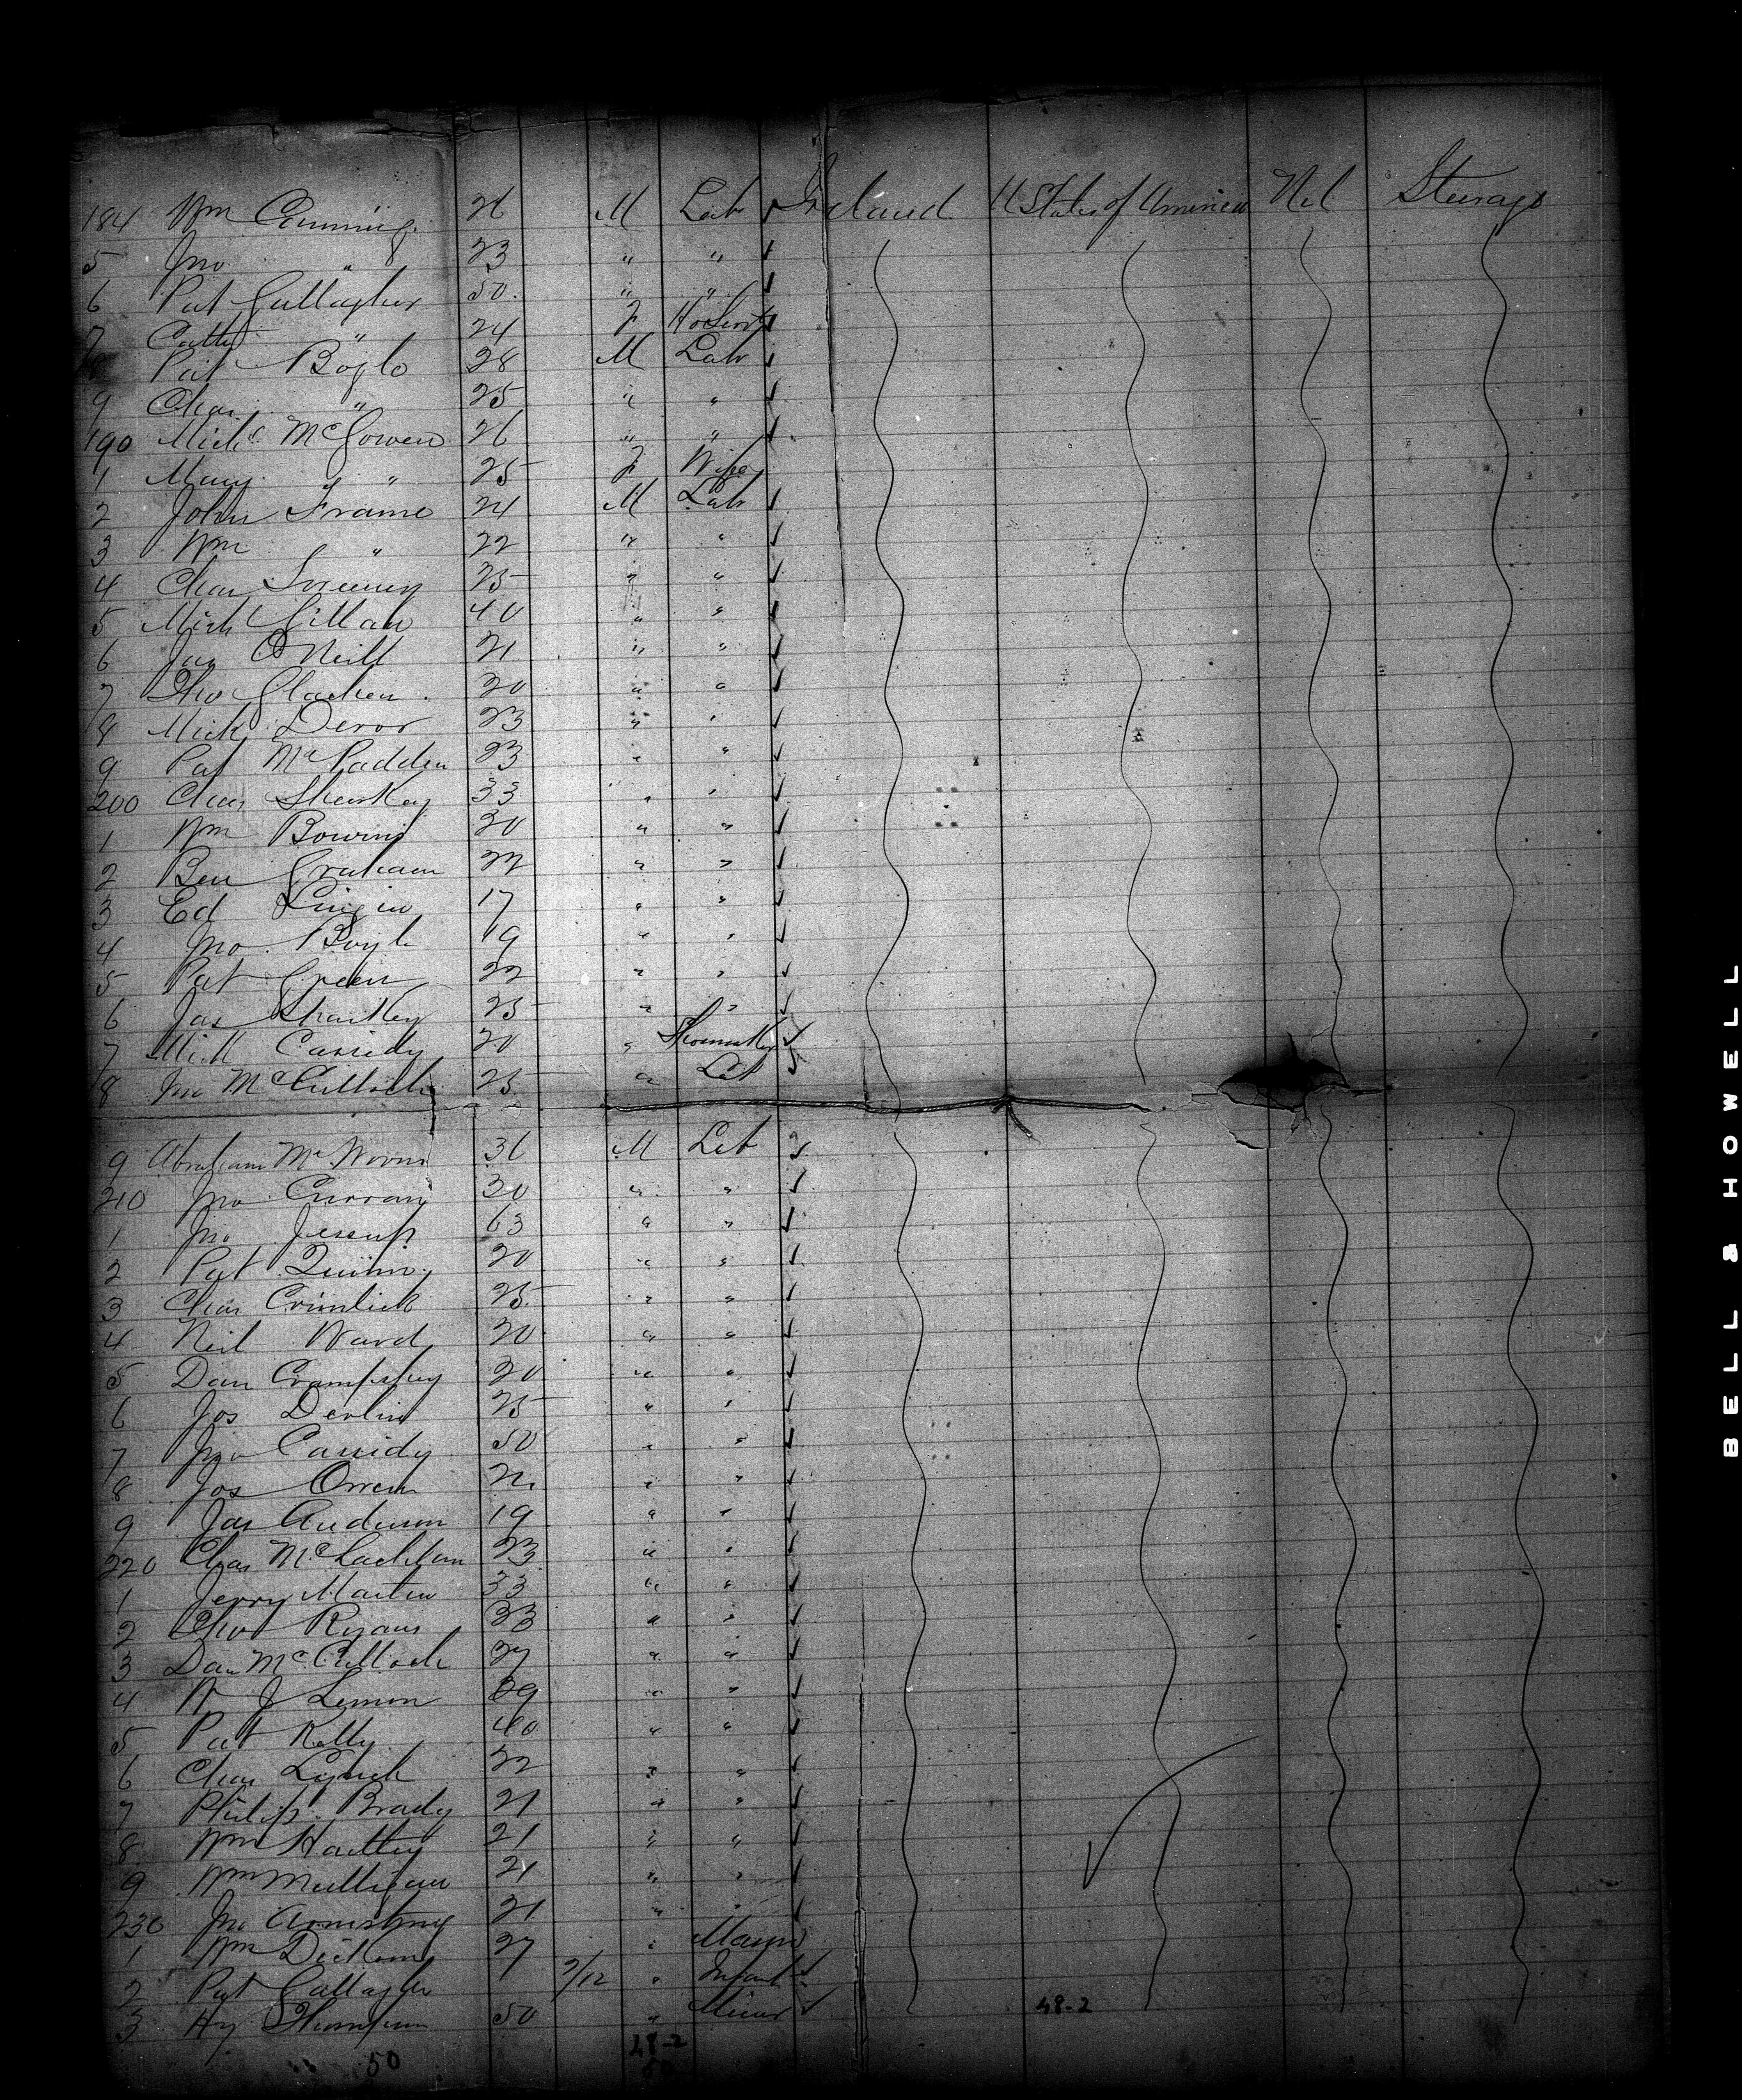 184 Wm Cumming 26 M Lab Ireland U States of America Nil Steerage
5 Jno " 23 " "
6 Pat Gallagher 50 " "
7 Cath " 24 F HoServt
8 Pat Boyle 28 M Lab
9 Chas " 25 " "
190 Michl McGowen 26 " "
1 Mary " " 25 F Wife
2 John Frame 24 M Lab
3 Wm " 22 " "
4 Chas Sweeney 25 " "
5 Mich Gillan 40 " "
6 Jas O'Neill 21 " "
7 Tho Glacken 20 " "
8 Mick Dever 23 " "
9 Pat McFadden 23 " "
200 Chas Sharkey 33 " "
1 Wm 30 " "
2 Ben Graham 22 " "
3 Ed 17 " "
4 Jno Boyle 19 " "
5 Pat Green 22 " "
6 Jas Sharkey 25 " "
7 Mick Cassidy 20 " Shoemaker
8 Jno McCulloch 25 " Lab
9 Abraham Mc 36 M Lab
210 Jno Curran 30 " "
1 Jno Jessup 63 " "
2 Pat Quinn 20 " "
3 Chas Crimlick 25 " "
4 Neil Ward 20 " "
5 Dan Crampsey 20 " "
6 Jos Devlin 25 " "
7 Jno Cassidy 50 " "
8 Jos Orren 22 " "
9 Jas Anderson 19 " "
220 Chas McLachlan 23 " "
1 Jerry Martin 33 " "
2 Tho Ryans 33 " "
3 Dan McCulloch 27 " "
4 W J Lemon 39 " "
5 Pat Kelly 40 " "
6 Chas Lynch 22 " "
7 Philip Brady 21 " "
8 Wm Hartley 21 " "
9 Wm Mulligan 21 " "
230 Jno Armstrong 21 " "
1 Wm Dickens 27 " Mason
2 Pat Gallagher 9/12 " Infant
3 Hy Thompson 50 " Miner 48-2
50 48-2
50
BELL & HOWELL